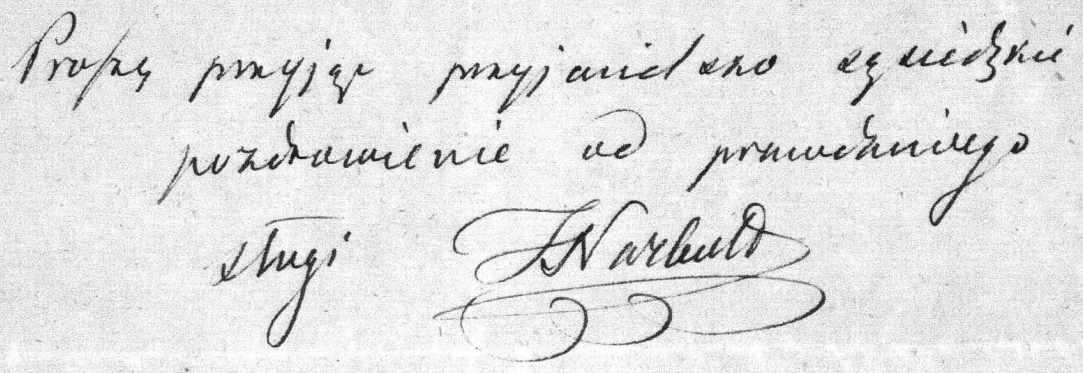 Proszę przyjąć przyjacielsko sąsiedzkie
pozdrowienie od prawdziwego
sługi TNarbutt